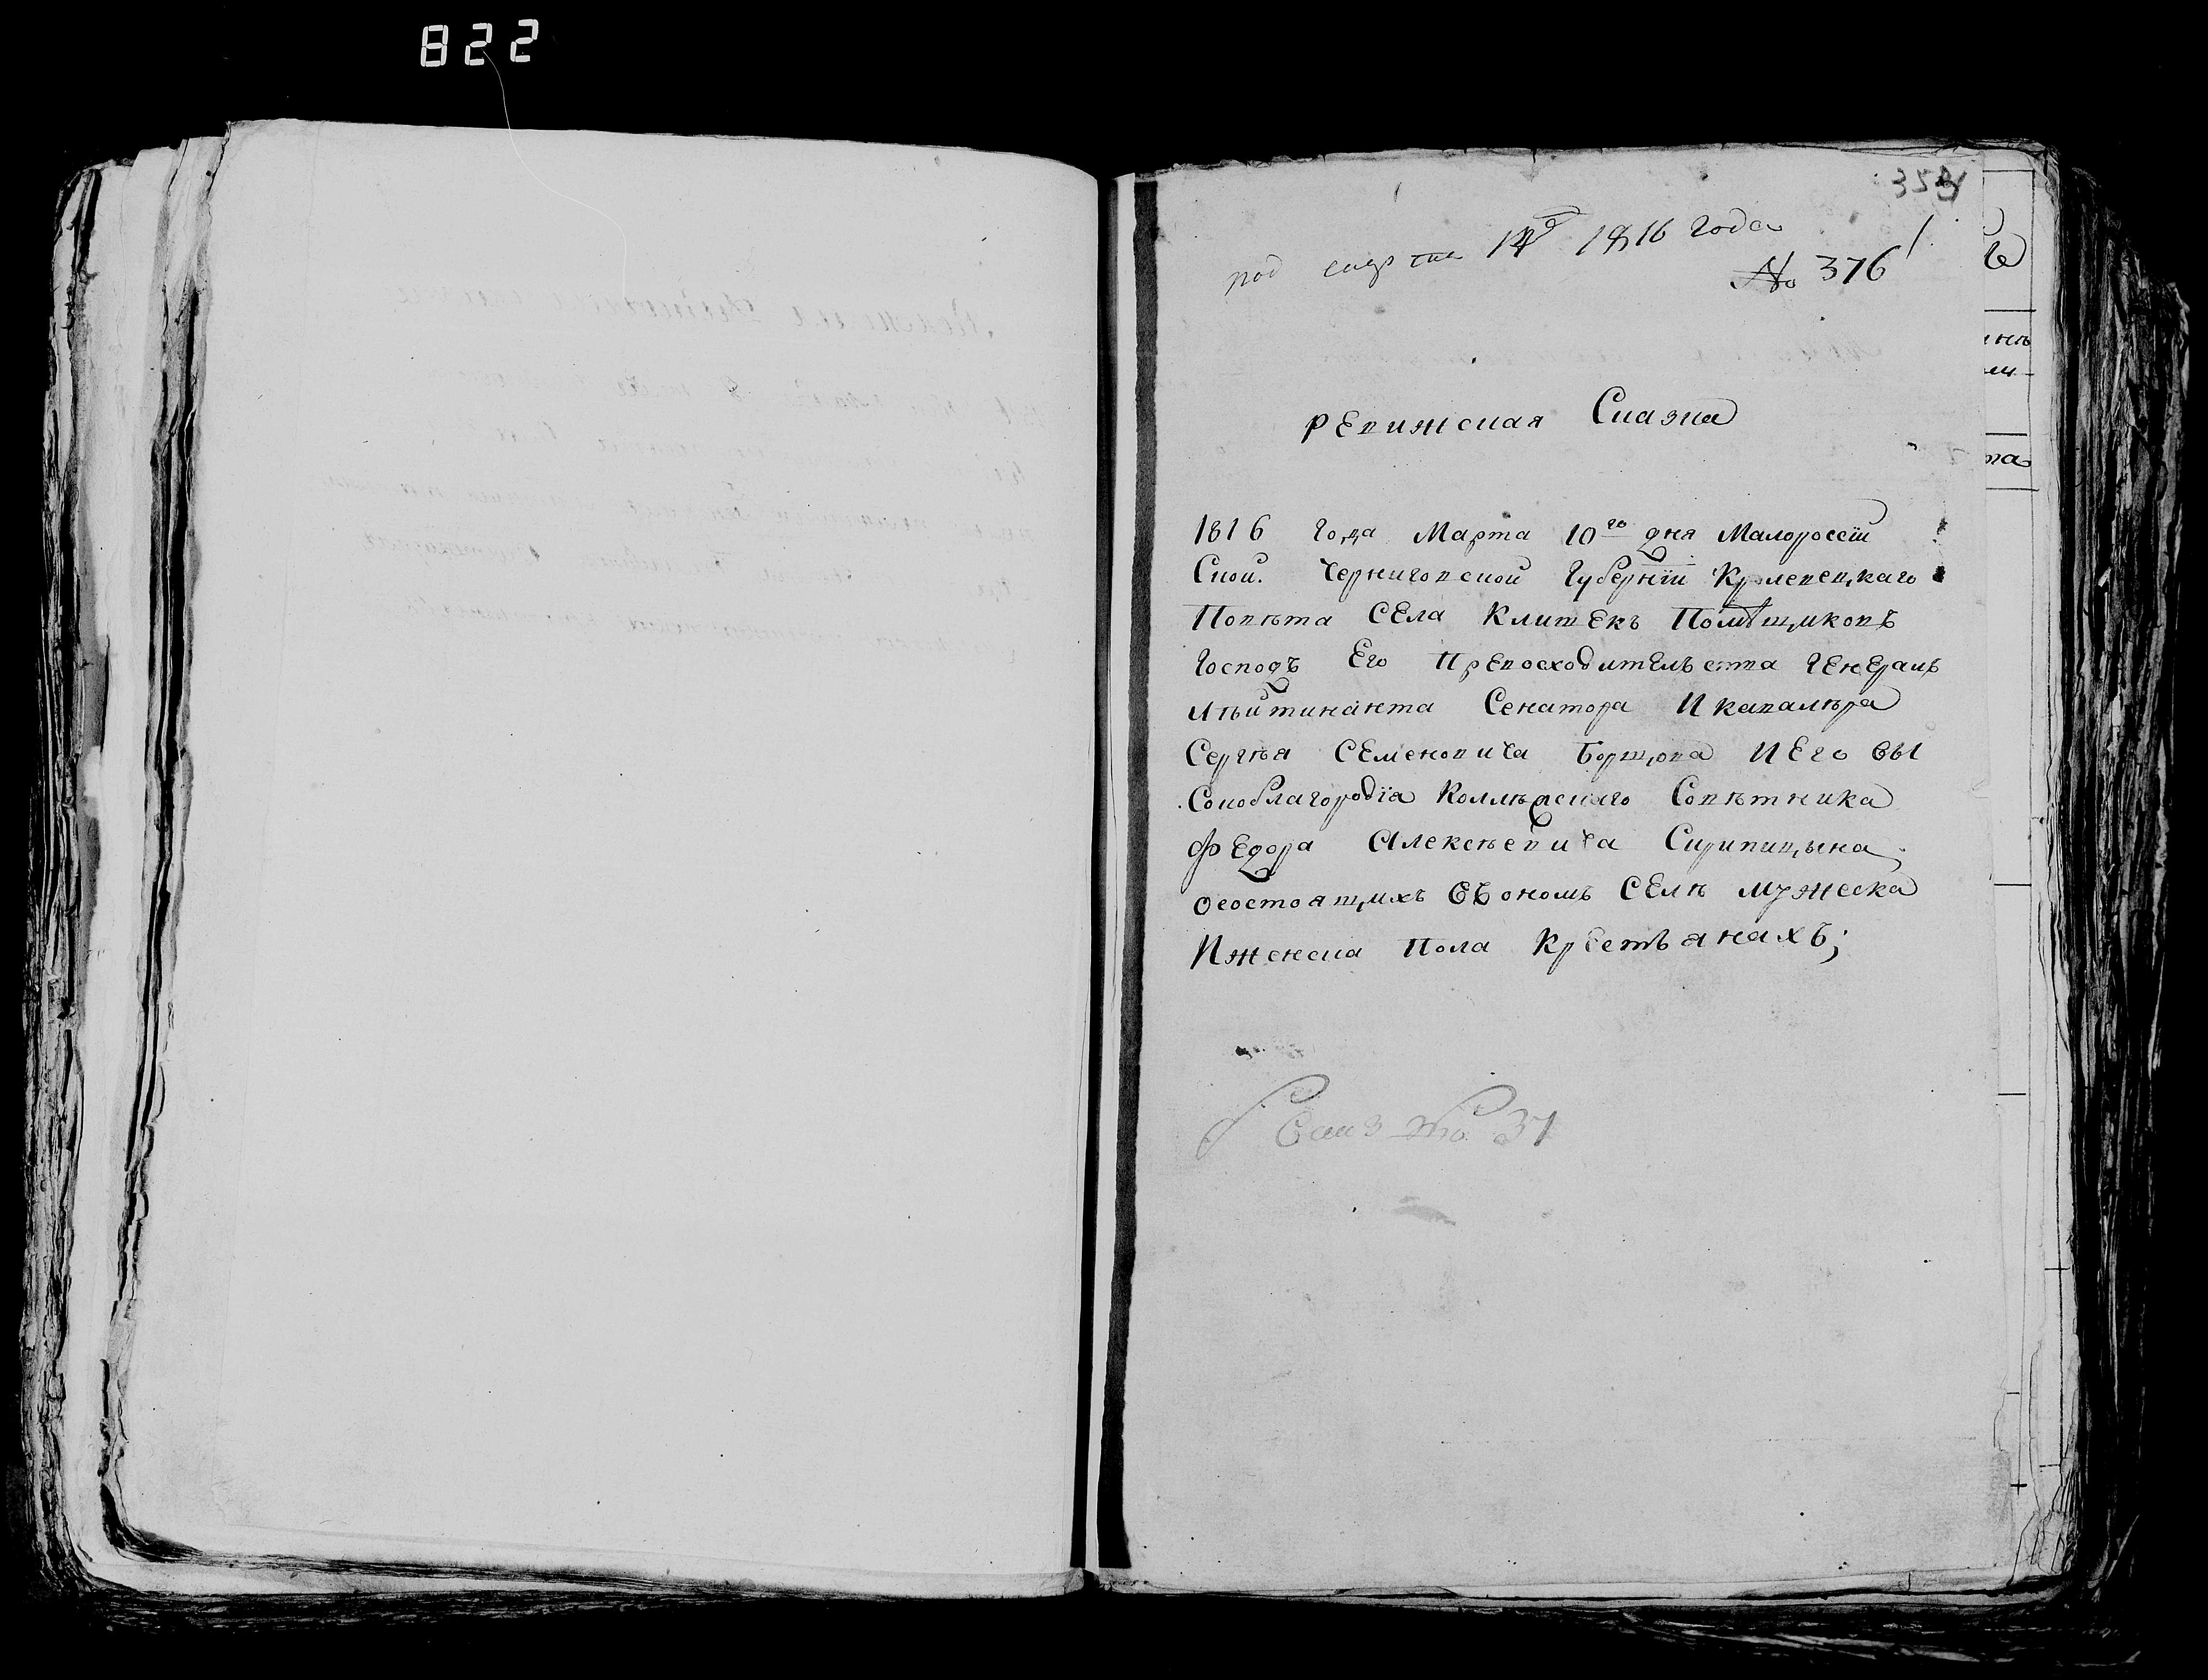 822
под 14 1816 года
№ 376
ревижская Сказка
1816 года Марта 10го дня Малороссїй
Ской. Черниговской Губернїи Кролевецкаго
Повѣта СЕла КлишЕкъ Помѣщиковъ
Господъ Его ПрЕвосходитЕлъства ГЕнЕралъ
лѣйтинанта Сенатора И кавалѣра
Сергѣя СЕменовича Борщова И Его вы
Сокоблагородїя Коллѣжскаго Совѣтника
ФЕдора Алексѣевича Скрипицына
осостоящихъ въ ономъ СЕлѣ мужеска
И женска Пола Крестъянахъ;
№ 37